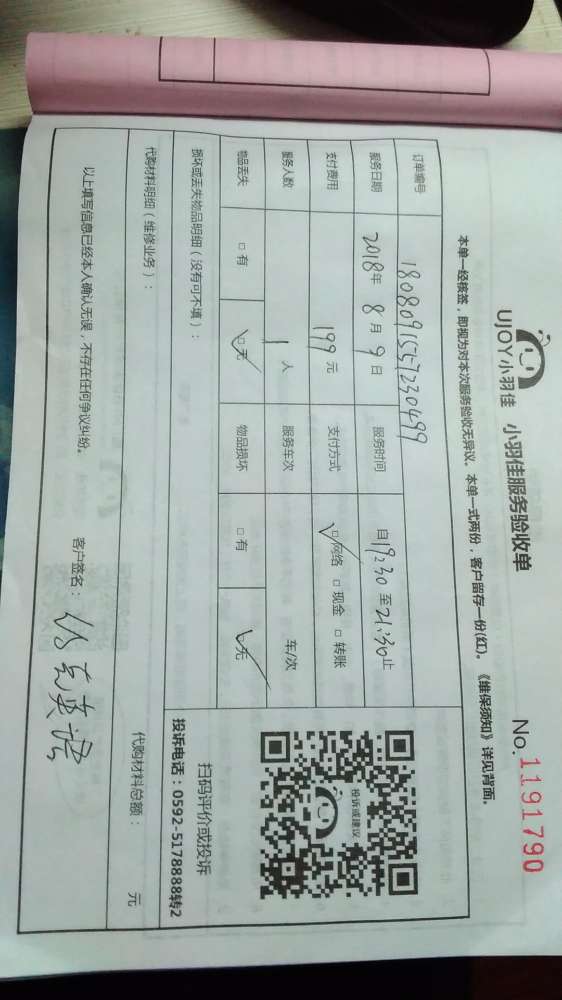 UJOY小羽佳 小羽佳服务验收单 No.1191790
本单一经核签，即视为对本次服务验收无异议。本单一式两份，客户留存一份(红)。《维保须知》详见背面。
订单编号 1808091557230499
服务日期 2018年8月9日 服务时间 自19:30至21:30止
支付费用 199元 支付方式 ☑网络 □现金 □转账
服务人数 1人 服务车次 车/次
物品丢失 □有 ☑无 物品损坏 □有 ☑无
投诉或建议
扫码评价或投诉
投诉电话：0592-5178888转2
损坏或丢失物品明细（没有可不填）：
代购材料明细（维修业务）： 代购材料总额： 元
以上填写信息已经本人确认无误，不存在任何争议纠纷。 客户签名：